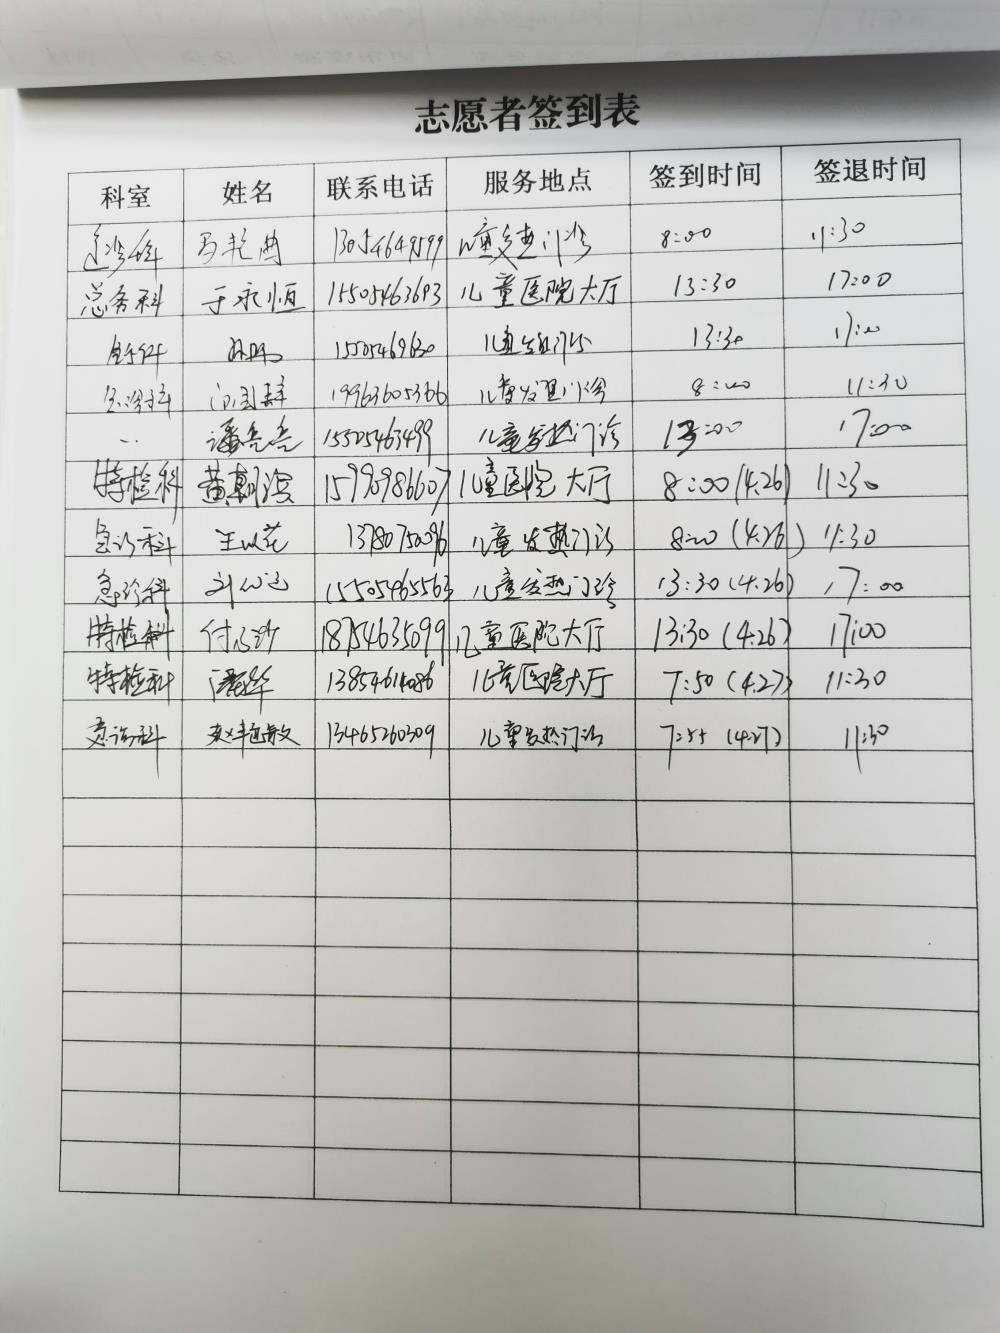 志愿者签到表
科室 姓名 联系电话 服务地点 签到时间 签退时间
急诊科 马艳 儿童发热门诊 8:00 11:30
总务科 于永恒 15505463693 儿童医院大厅 13:30 17:00
15505469630 儿童发热门诊 13:30 17:00
急诊科 19963605366 儿童发热门诊 8:00 11:30
.. 潘亮亮 15505463499 儿童发热门诊 13:00 17:00
特检科 黄朝滨 15990986607 儿童医院大厅 8:00(4.26) 11:30
急诊科 13780750096 儿童发热门诊 8:00(4.26) 11:30
急诊科 15505465563 儿童发热门诊 13:30(4.26) 17:00
特检科 付心沙 18754635099 儿童医院大厅 13:30(4.26) 17:00
特检科 13854614086 儿童医院大厅 7:50(4.27) 11:30
急诊科 赵艳敏 13465260309 儿童发热门诊 7:55(4.27) 11:30